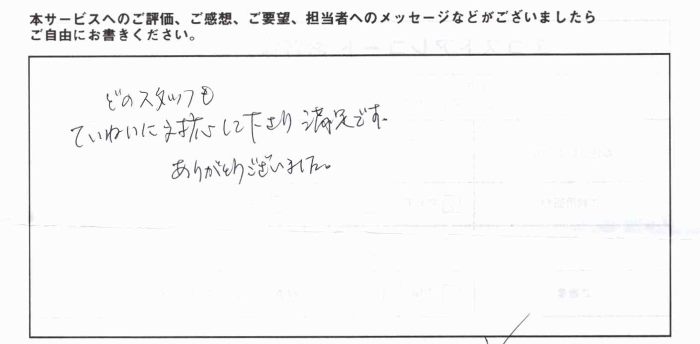 本サービスへのご評価、ご感想、ご要望、担当者へのメッセージなどがございましたら
ご自由にお書きください。
どのスタッフも
ていねいに対応して下さり満足です。
ありがとうございました。